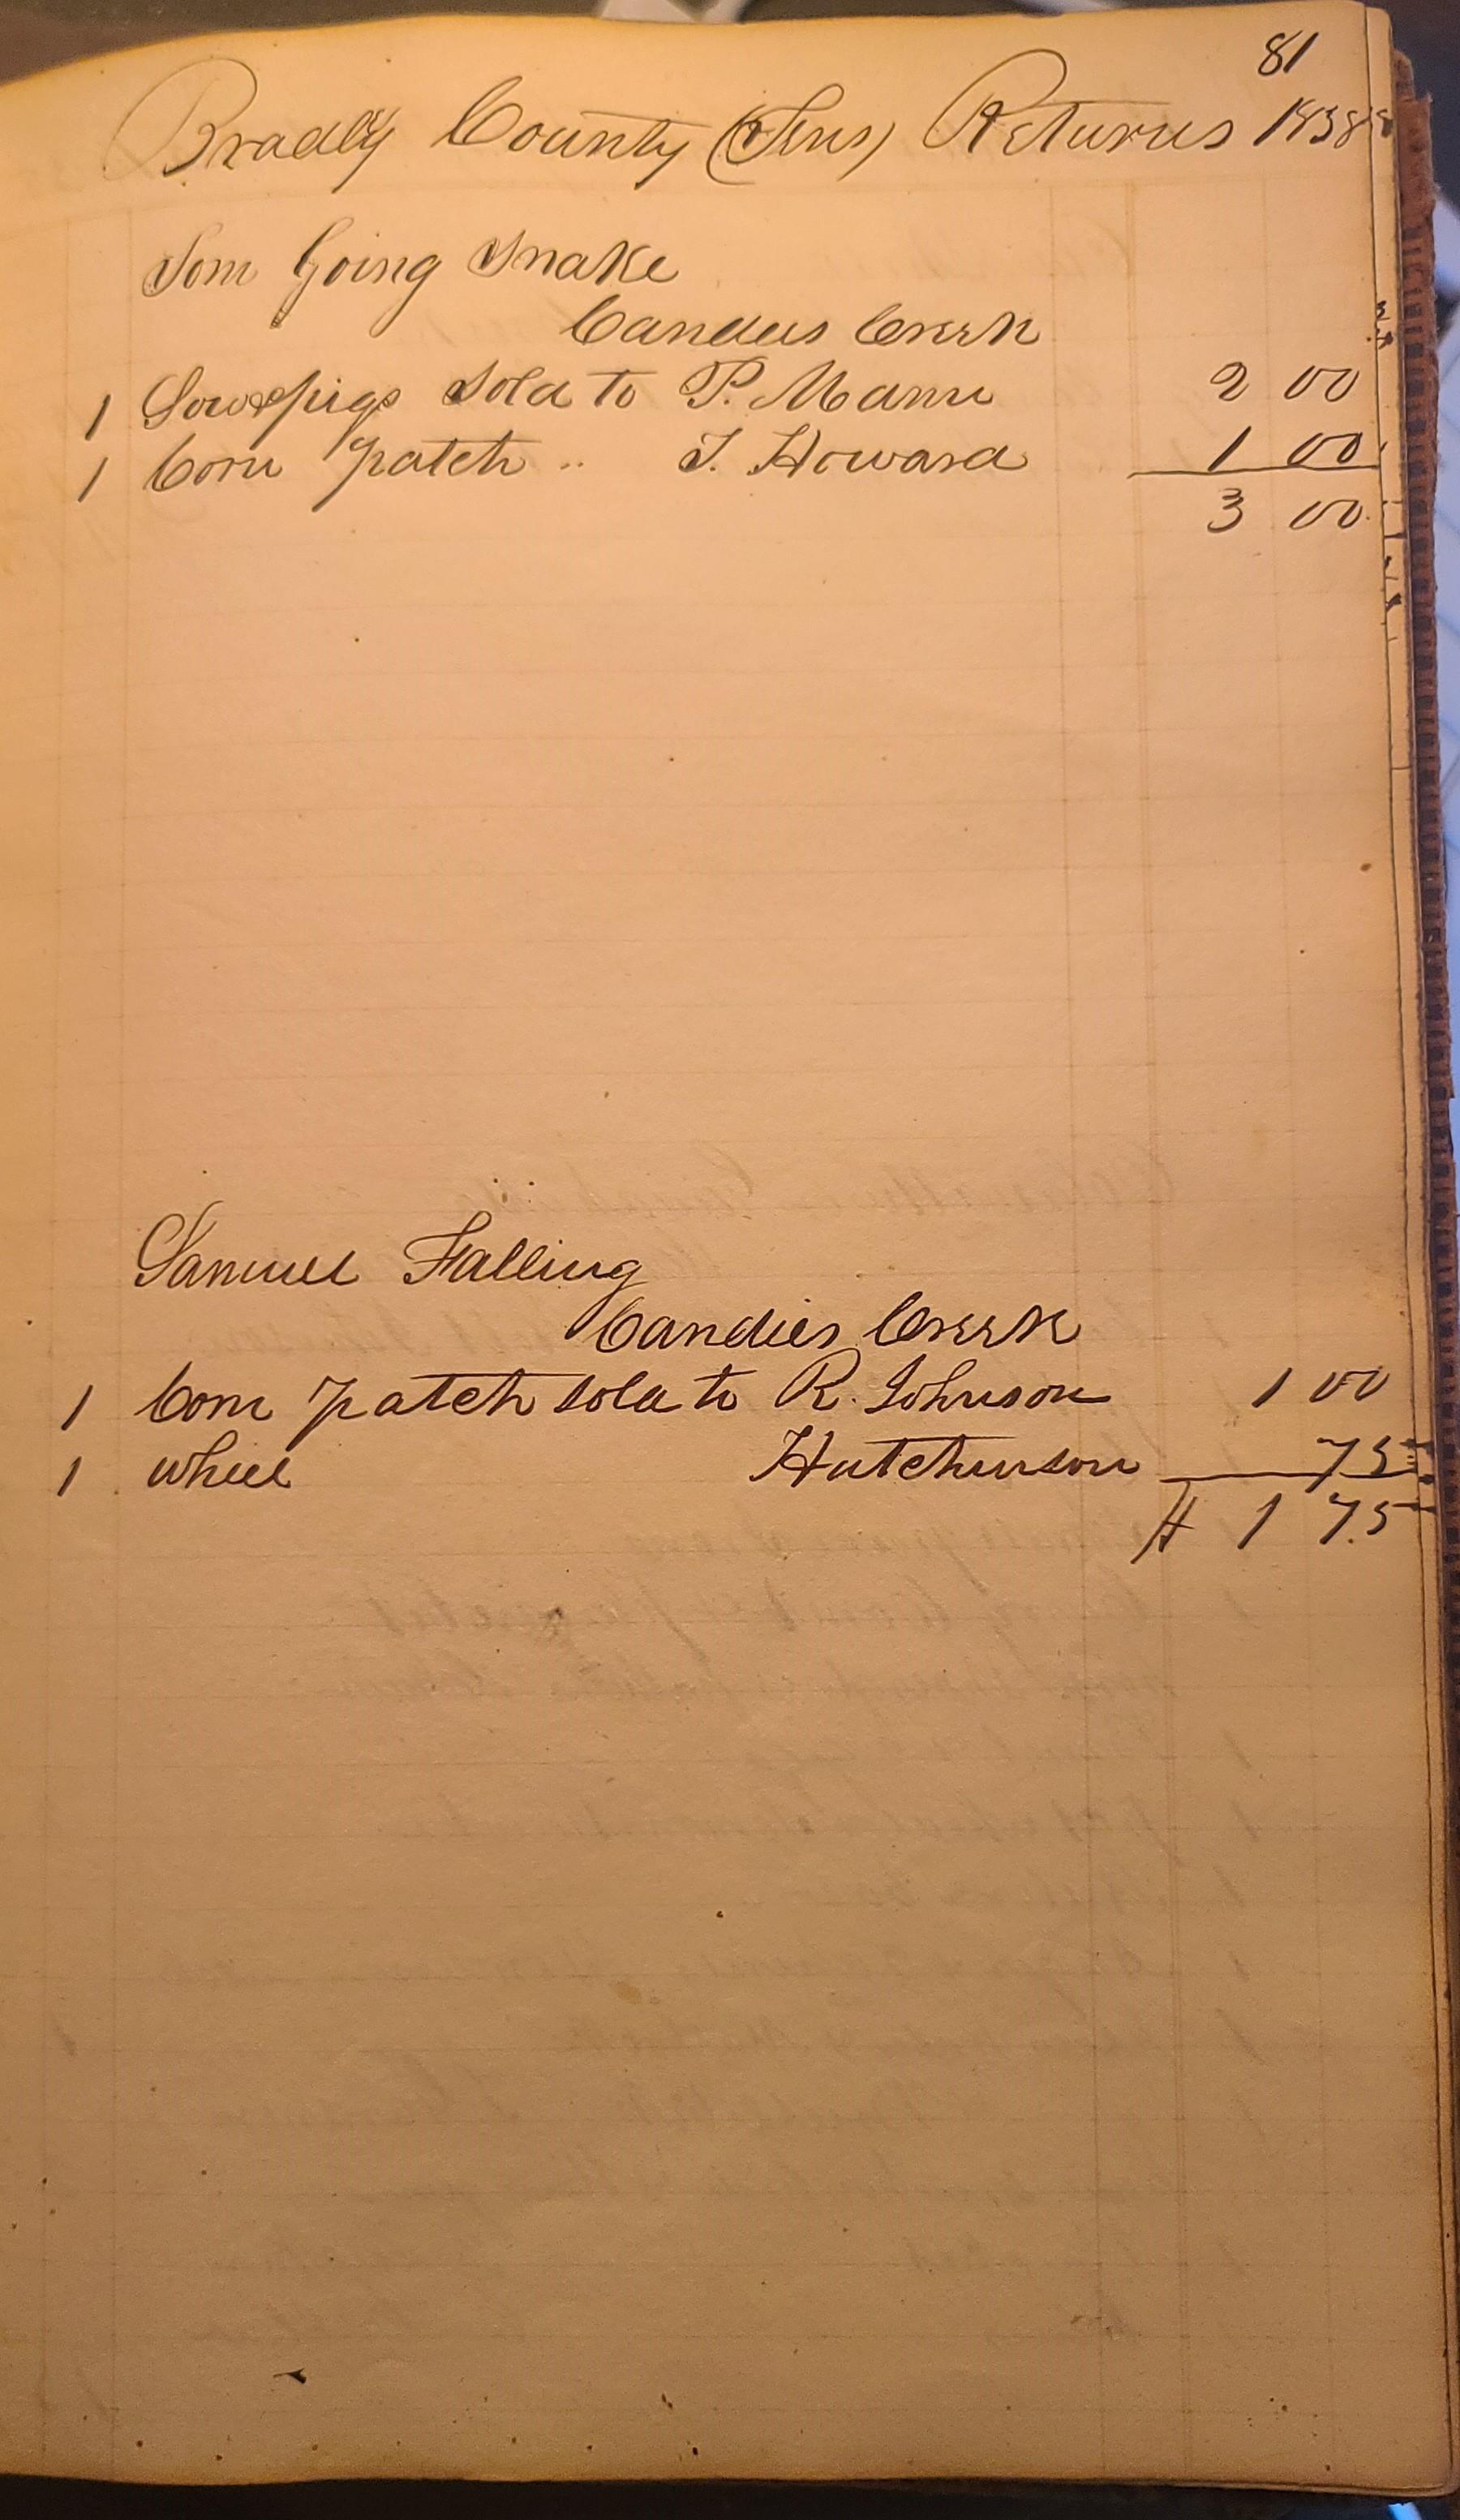 81
Bradly County (Tens) Returns 1838
Tom Going Snake
Candies Creek
1 Sow & pigs Sold to P. Mann 2 00
1 Corn patch .. T. Howard 1 00
3 00
Samuel Falling
Candies Creek
1 Corn patch sold to R. Johnson 1 00
1 wheel Hutchinson 75
$ 1 75